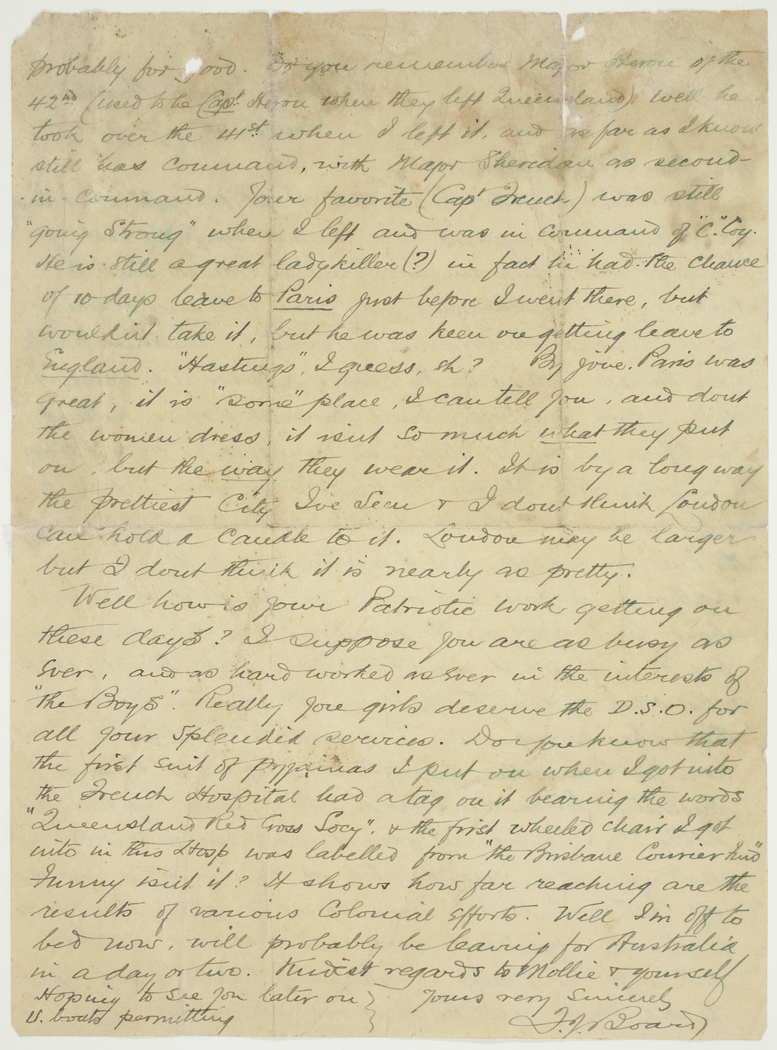 probably for good. Do you remember Major Heron of the
42nd (used to be Capt Heron when they left Queensland) well he
took over the 41st when I left it, and as far as I know
still has command, with Major Sheridan as second-
in-command. Your favorite (Capt French) was still
"going Strong" when I left and was in command of "C" Coy.
He is still a great ladykiller (?) in fact he had the chance
of 10 days leave to Paris just before I went there, but
wouldnt take it, but he was keen on getting leave to
England. "Hastings", I guess, eh? By jove. Paris was
great, it is "some" place, I can tell you, and dont
the women dress, it isnt so much what they put
on, but the way they wear it. It is by a long way
the prettiest City Ive seen & I dont think London
can hold a candle to it. London may be larger
but I dont think it is nearly as pretty.
Well how is your Patriotic work getting on
these days? I suppose you are as busy as
ever, and as hard worked as ever in the interests of
"the Boys". Really you girls deserve the D.S.O. for
all your splendid services. Do you know that
the first suit of pyjamas I put on when I got into
the French Hospital had a tag on it bearing the words
"Queensland Red Cross Socy", & the first wheeled chair I got
into in this Hosp was labelled from "the Brisbane Courier Fund"
Funny isnt it? It shows how far reaching are the
results of various Colonial efforts. Well I'm off to
bed now, will probably be leaving for Australia
in a day or two. Kindest regards to Mollie & yourself
Hoping to see you later on } Yours very Sincerely
U. boats permitting F.J. Board